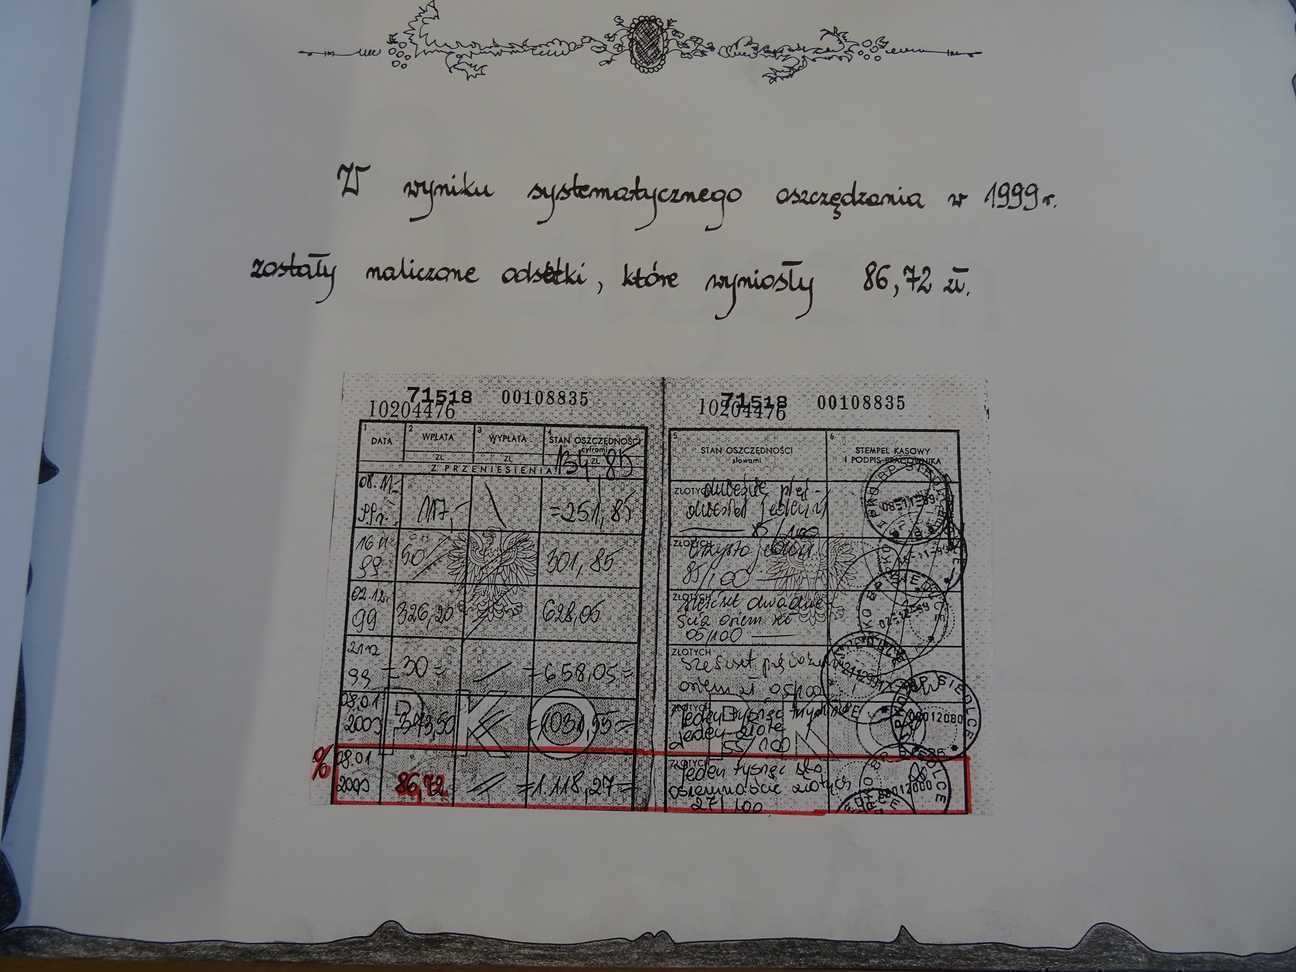 W wyniku systematycznego oszczędzania w 1999 r.
zostały naliczone odsetki, które wyniosły 86,72 zł.
71518 00108835
10204476
71518 00108835
10204476
1 DATA 2 WPŁATA 3 WYPŁATA 4 STAN OSZCZĘDNOŚCI cyframi
ZŁ ZŁ ZŁ
Z PRZENIESIENIA 134 85
5 STAN OSZCZĘDNOŚCI słowami 6 STEMPEL KASOWY I PODPIS PRACOWNIKA
08.11 99r. 117,- =251,85
ZŁOTYCH dwieście pięćdziesiąt jeden zł 85/100
16.11 99 50 301,85
ZŁOTYCH trzysta jeden 85/100
02.12. 99 326,20 628,05
ZŁOTYCH sześćset dwadzieścia osiem zł 05/100
99 =30= =658,05=
ZŁOTYCH sześćset pięćdziesiąt osiem zł 05/100
08.01 2000 =1031,55=
ZŁOTYCH jeden tysiąc trzydzieści jeden złote 55/100
PKO PKO
% 08.01 2000 86,72 =1.118,27=
ZŁOTYCH jeden tysiąc sto osiemnaście złotych 27/100
PKO BP SIEDLCE